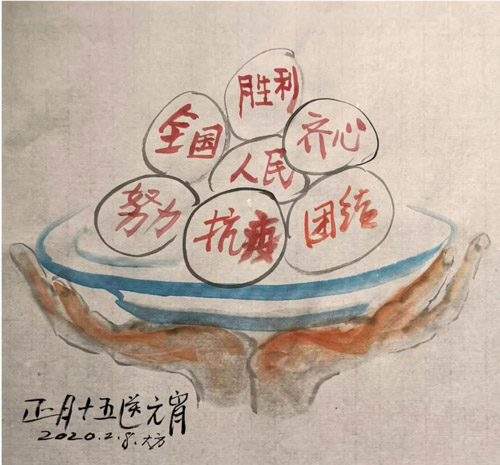 胜利
全国
齐心
人民
努力
抗疫
团结
正月十五送元宵
2020.2.8.大方